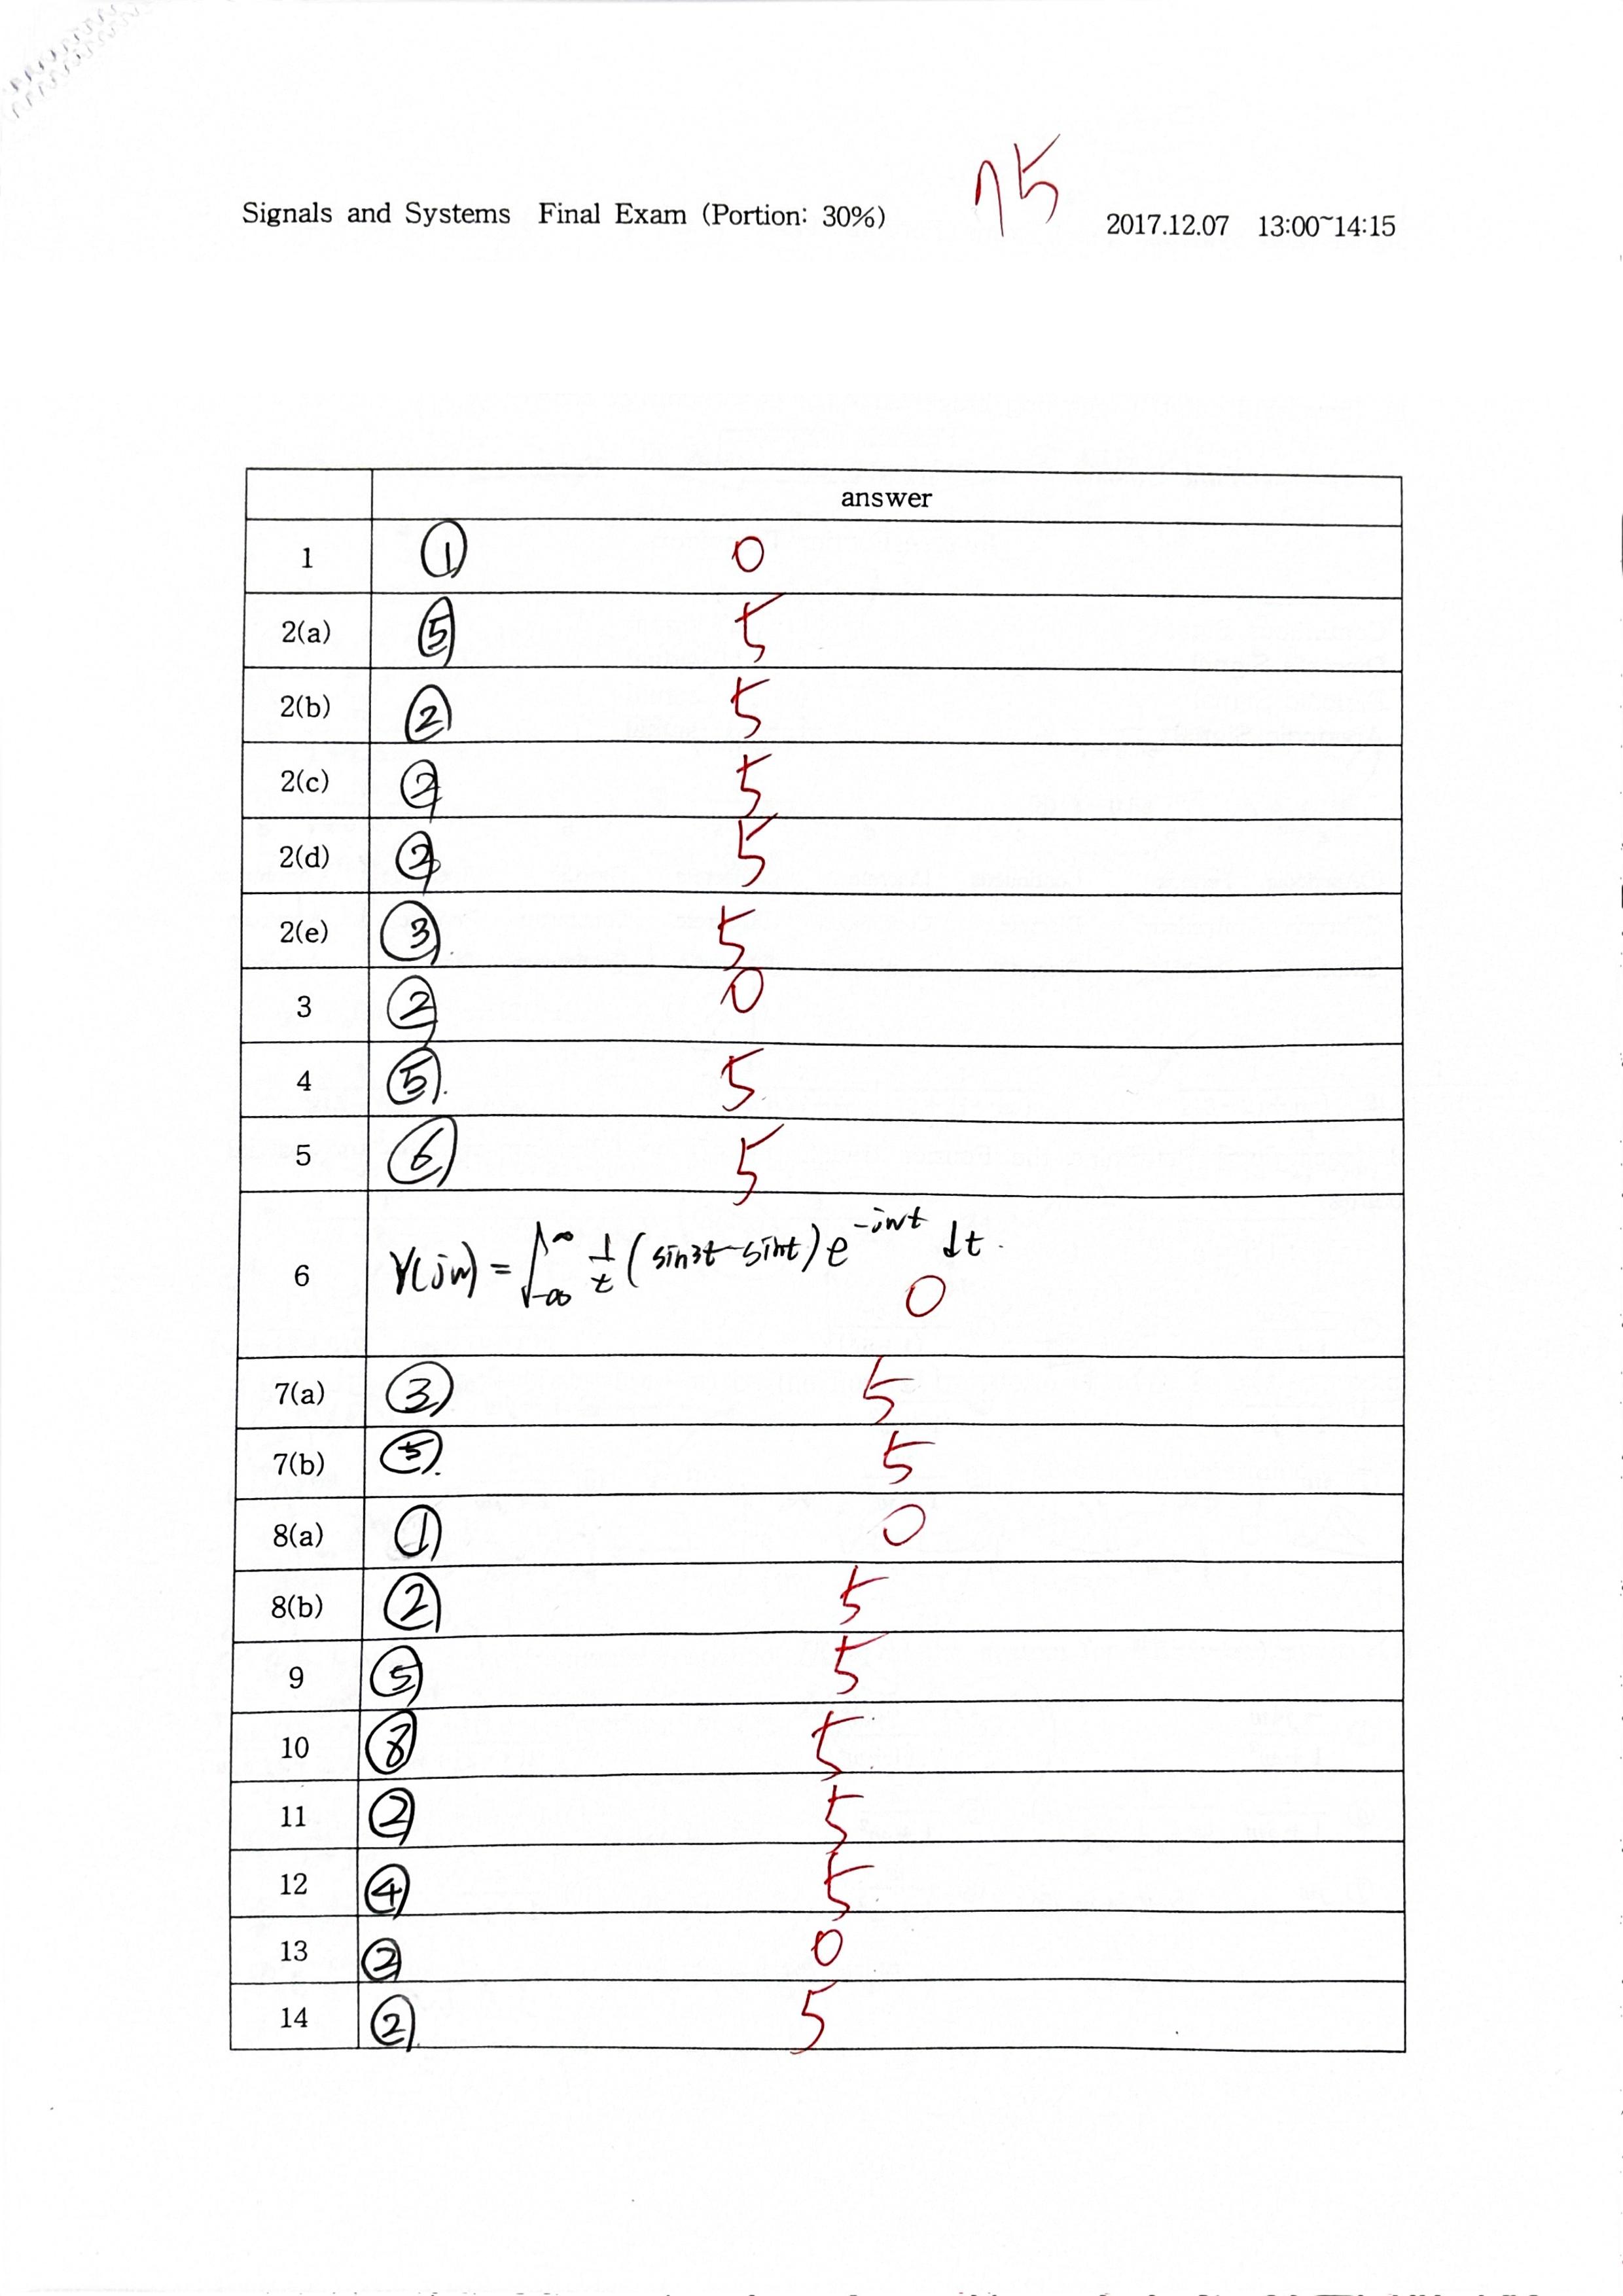 Signals and Systems Final Exam (Portion: 30%)
75
2017.12.07 13:00~14:15
answer
1 ① 0
2(a) ⑤ 5
2(b) ② 5
2(c) ② 5
2(d) ② 5
2(e) ③ 5
3 ② 0
4 ⑤ 5
5 ⑥ 5
6 Y(jw) = ∫_{-∞}^{∞} 1/t (sin3t-sint) e^{-jwt} dt. 0
7(a) ③ 5
7(b) ⑤ 5
8(a) ① 0
8(b) ② 5
9 ⑤ 5
10 ⑧ 5
11 ② 5
12 ④ 5
13 ② 0
14 ② 5